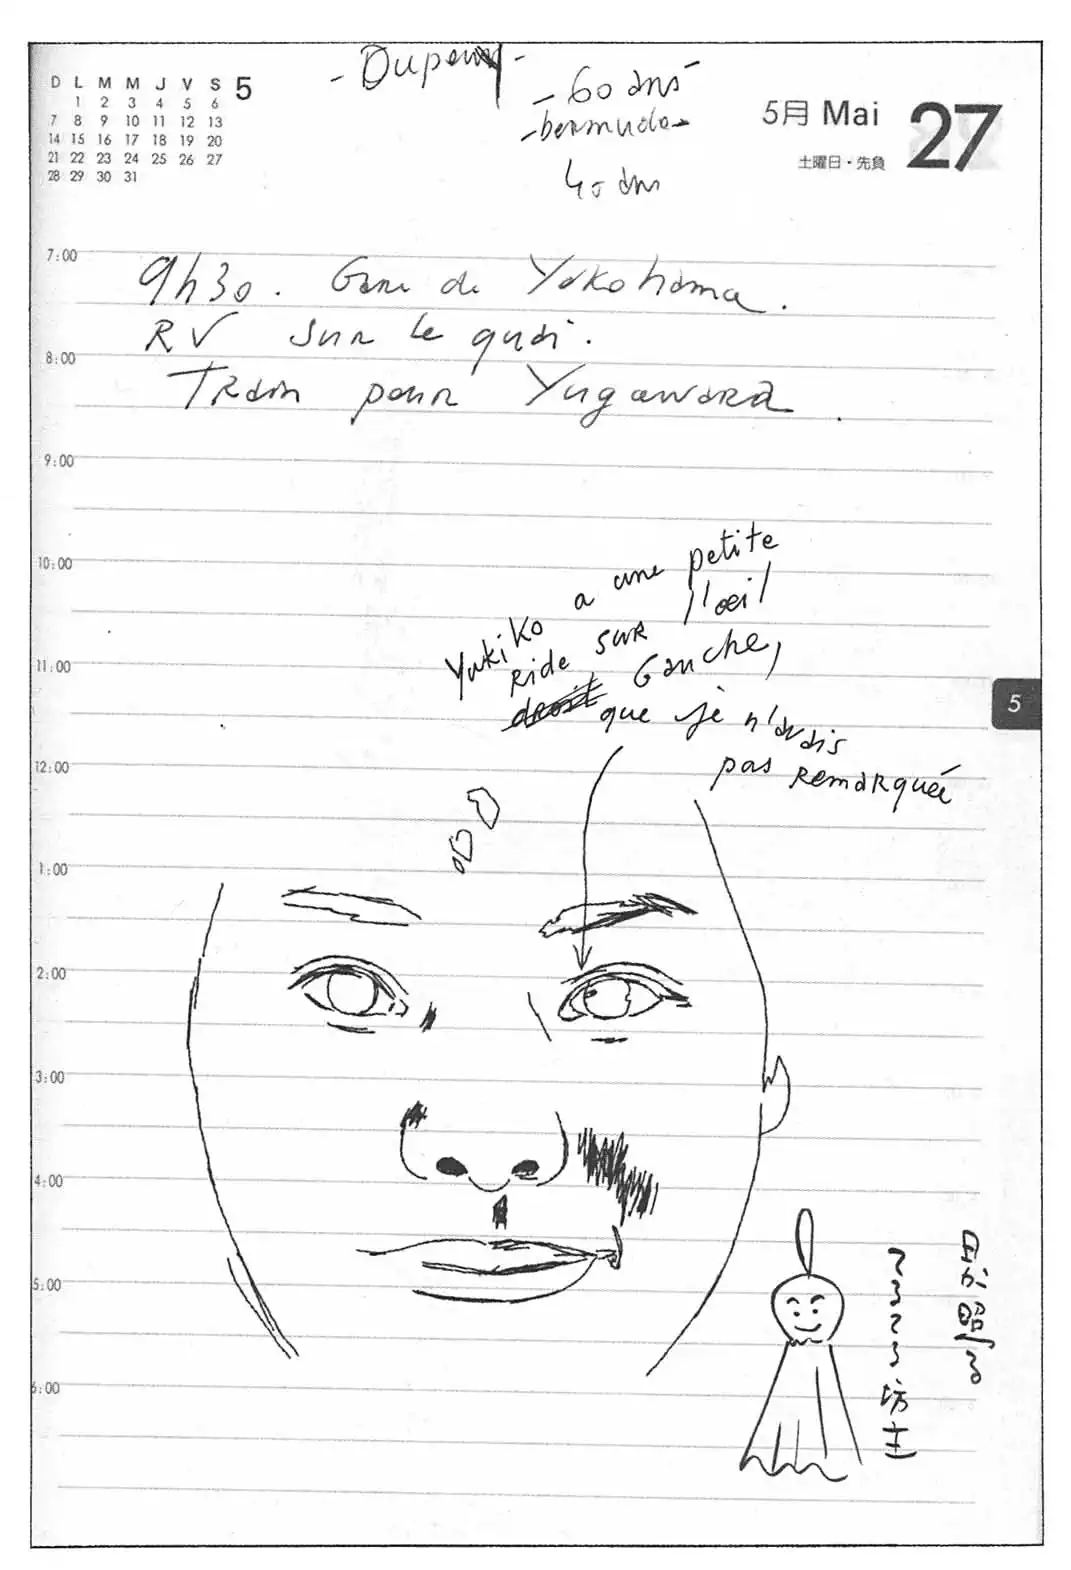 D L M M J V S 5
1 2 3 4 5 6
7 8 9 10 11 12 13
14 15 16 17 18 19 20
21 22 23 24 25 26 27
28 29 30 31
- 60 ans
- bermuda -
40 ans
5月 Mai 27
土曜日・先負
7:00
9h30. Gare de Yokohama.
RV sur le quai.
8:00
Train pour Yugawara.
9:00
10:00
Yukiko a une petite
ride sur l'oeil
droit Gauche,
que je n'avais
pas remarquée
11:00
5
12:00
1:00
2:00
3:00
4:00
5:00
6:00
日が照る
てるてる坊主